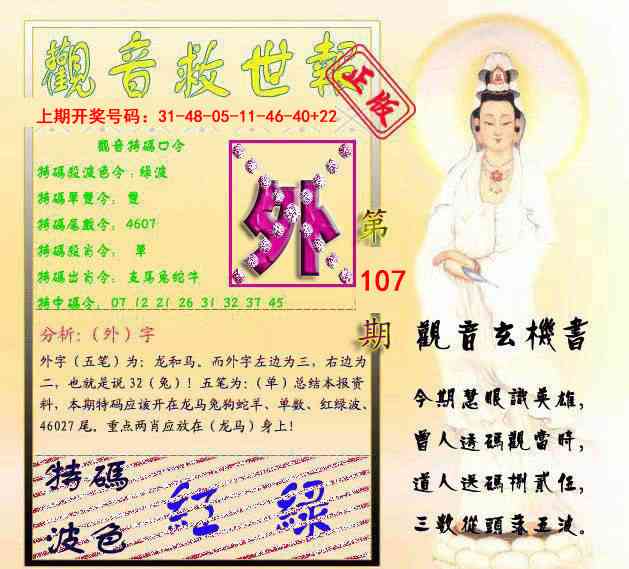 觀音救世報
正版
上期开奖号码：31-48-05-11-46-40+22
觀音特碼口令
特碼殺波色令：綠波
特碼單雙令： 雙
特碼尾數令： 4607
特碼殺肖令： 單
特碼出肖令： 龙馬兔蛇牛
特中碼令： 07 12 21 26 31 32 37 45
外
第
107
期
分析：（外）字
外字（五笔）为：龙和马。而外字左边为三，右边为
二，也就是说 32（兔）！五笔为：（单）总结本报资
料，本期特码应该开在龙马兔狗蛇羊、单数、红绿波、
46027 尾。重点两肖应放在（龙马）身上！
特碼
波色
紅 綠
觀音玄機書
今期慧眼識英雄，
曾人透碼觀當時，
道人送碼捌貳伍，
三数從頭來五波。